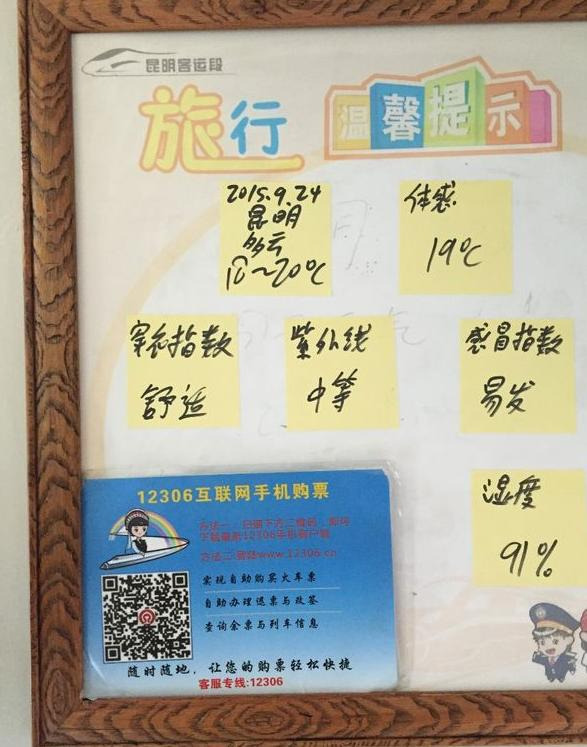 昆明客运段
旅行
温馨提示
2015.9.24
昆明
多云
~20℃
体感
19℃
穿衣指数
舒适
紫外线
中等
感冒指数
易发
湿度
91%
12306互联网手机购票
方法一:扫描下方二维码,即可
下载最新12306手机客户端
方法二:登陆www.12306.cn
实现自助购买火车票
自助办理退票与改签
查询余票与列车信息
随时随地,让您的购票轻松快捷
客服专线:12306